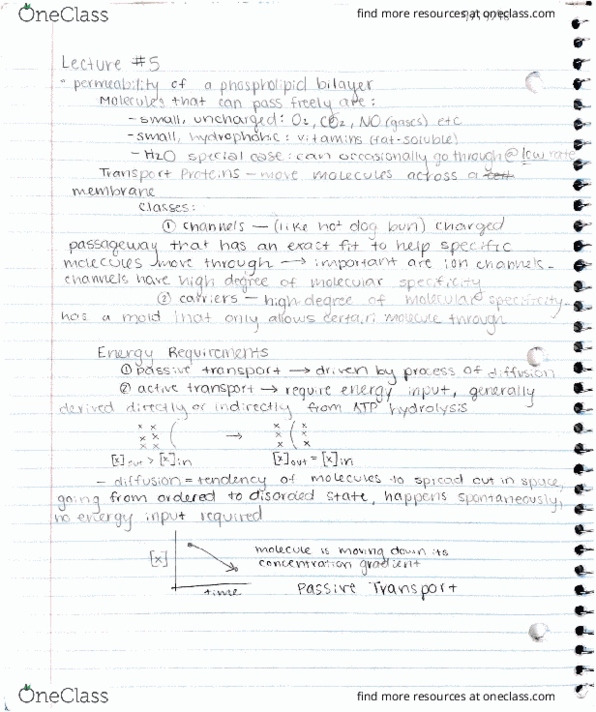 OneClass
find more resources at oneclass.com
Lecture #5
" permeability of a phospholipid bilayer
Molecules that can pass freely are:
- small, uncharged: O2, CO2, NO (gases) etc
- small, hydrophobic: vitamins (fat-soluble)
- H2O special case: can occasionally go through @ low rate
Transport Proteins - move molecules across a cell
membrane
Classes:
① channels - (like hot dog bun) charged
passageway that has an exact fit to help specific
molecules move through → important are ion channels-
channels have high degree of molecular specificity
② carriers - high degree of molecular specificity-
has a mold that only allows certain molecule through
Energy Requirements
① passive transport → driven by process of diffusion
② active transport → require energy input, generally
derived directly or indirectly from ATP hydrolysis
x x ( → x ( x
x x x x
x x x x
[x]out > [x]in [x]out = [x]in
- diffusion = tendency of molecules to spread out in space,
going from ordered to disorded state, happens spontaneously,
no energy input required
[x] molecule is moving down its
concentration gradient
time Passive Transport
OneClass
find more resources at oneclass.com